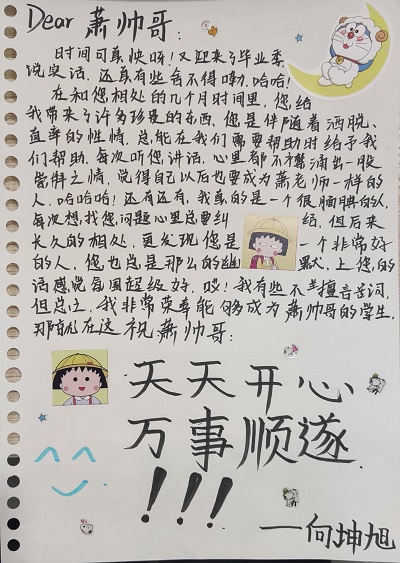 Dear 萧帅哥:
时间可真快呀!又迎来了毕业季
说实话,还真有些舍不得嘞,哈哈!
在和您相处的几个月时间里,您给
我带来了许多珍贵的东西,您是伴随着洒脱、
直率的性情,总能在我们需要帮助时给予我
们帮助,每次听您讲话,心里都不禁涌出一股
崇拜之情,觉得自己以后也要成为萧老师一样的
人,哈哈哈!还有还有,我真的是一个很腼腆的人,
每次想找您问题心里总要纠结,但后来
长久的相处,更发现您是一个非常好
的人,您也总是那么的幽默,上您的
话感觉氛围超级好,哎!我有些不善擅言词,
但总之,我非常荣幸能够成为萧帅哥的学生,
那就在这祝萧帅哥:
天天开心
万事顺遂
!!!
——何坤旭